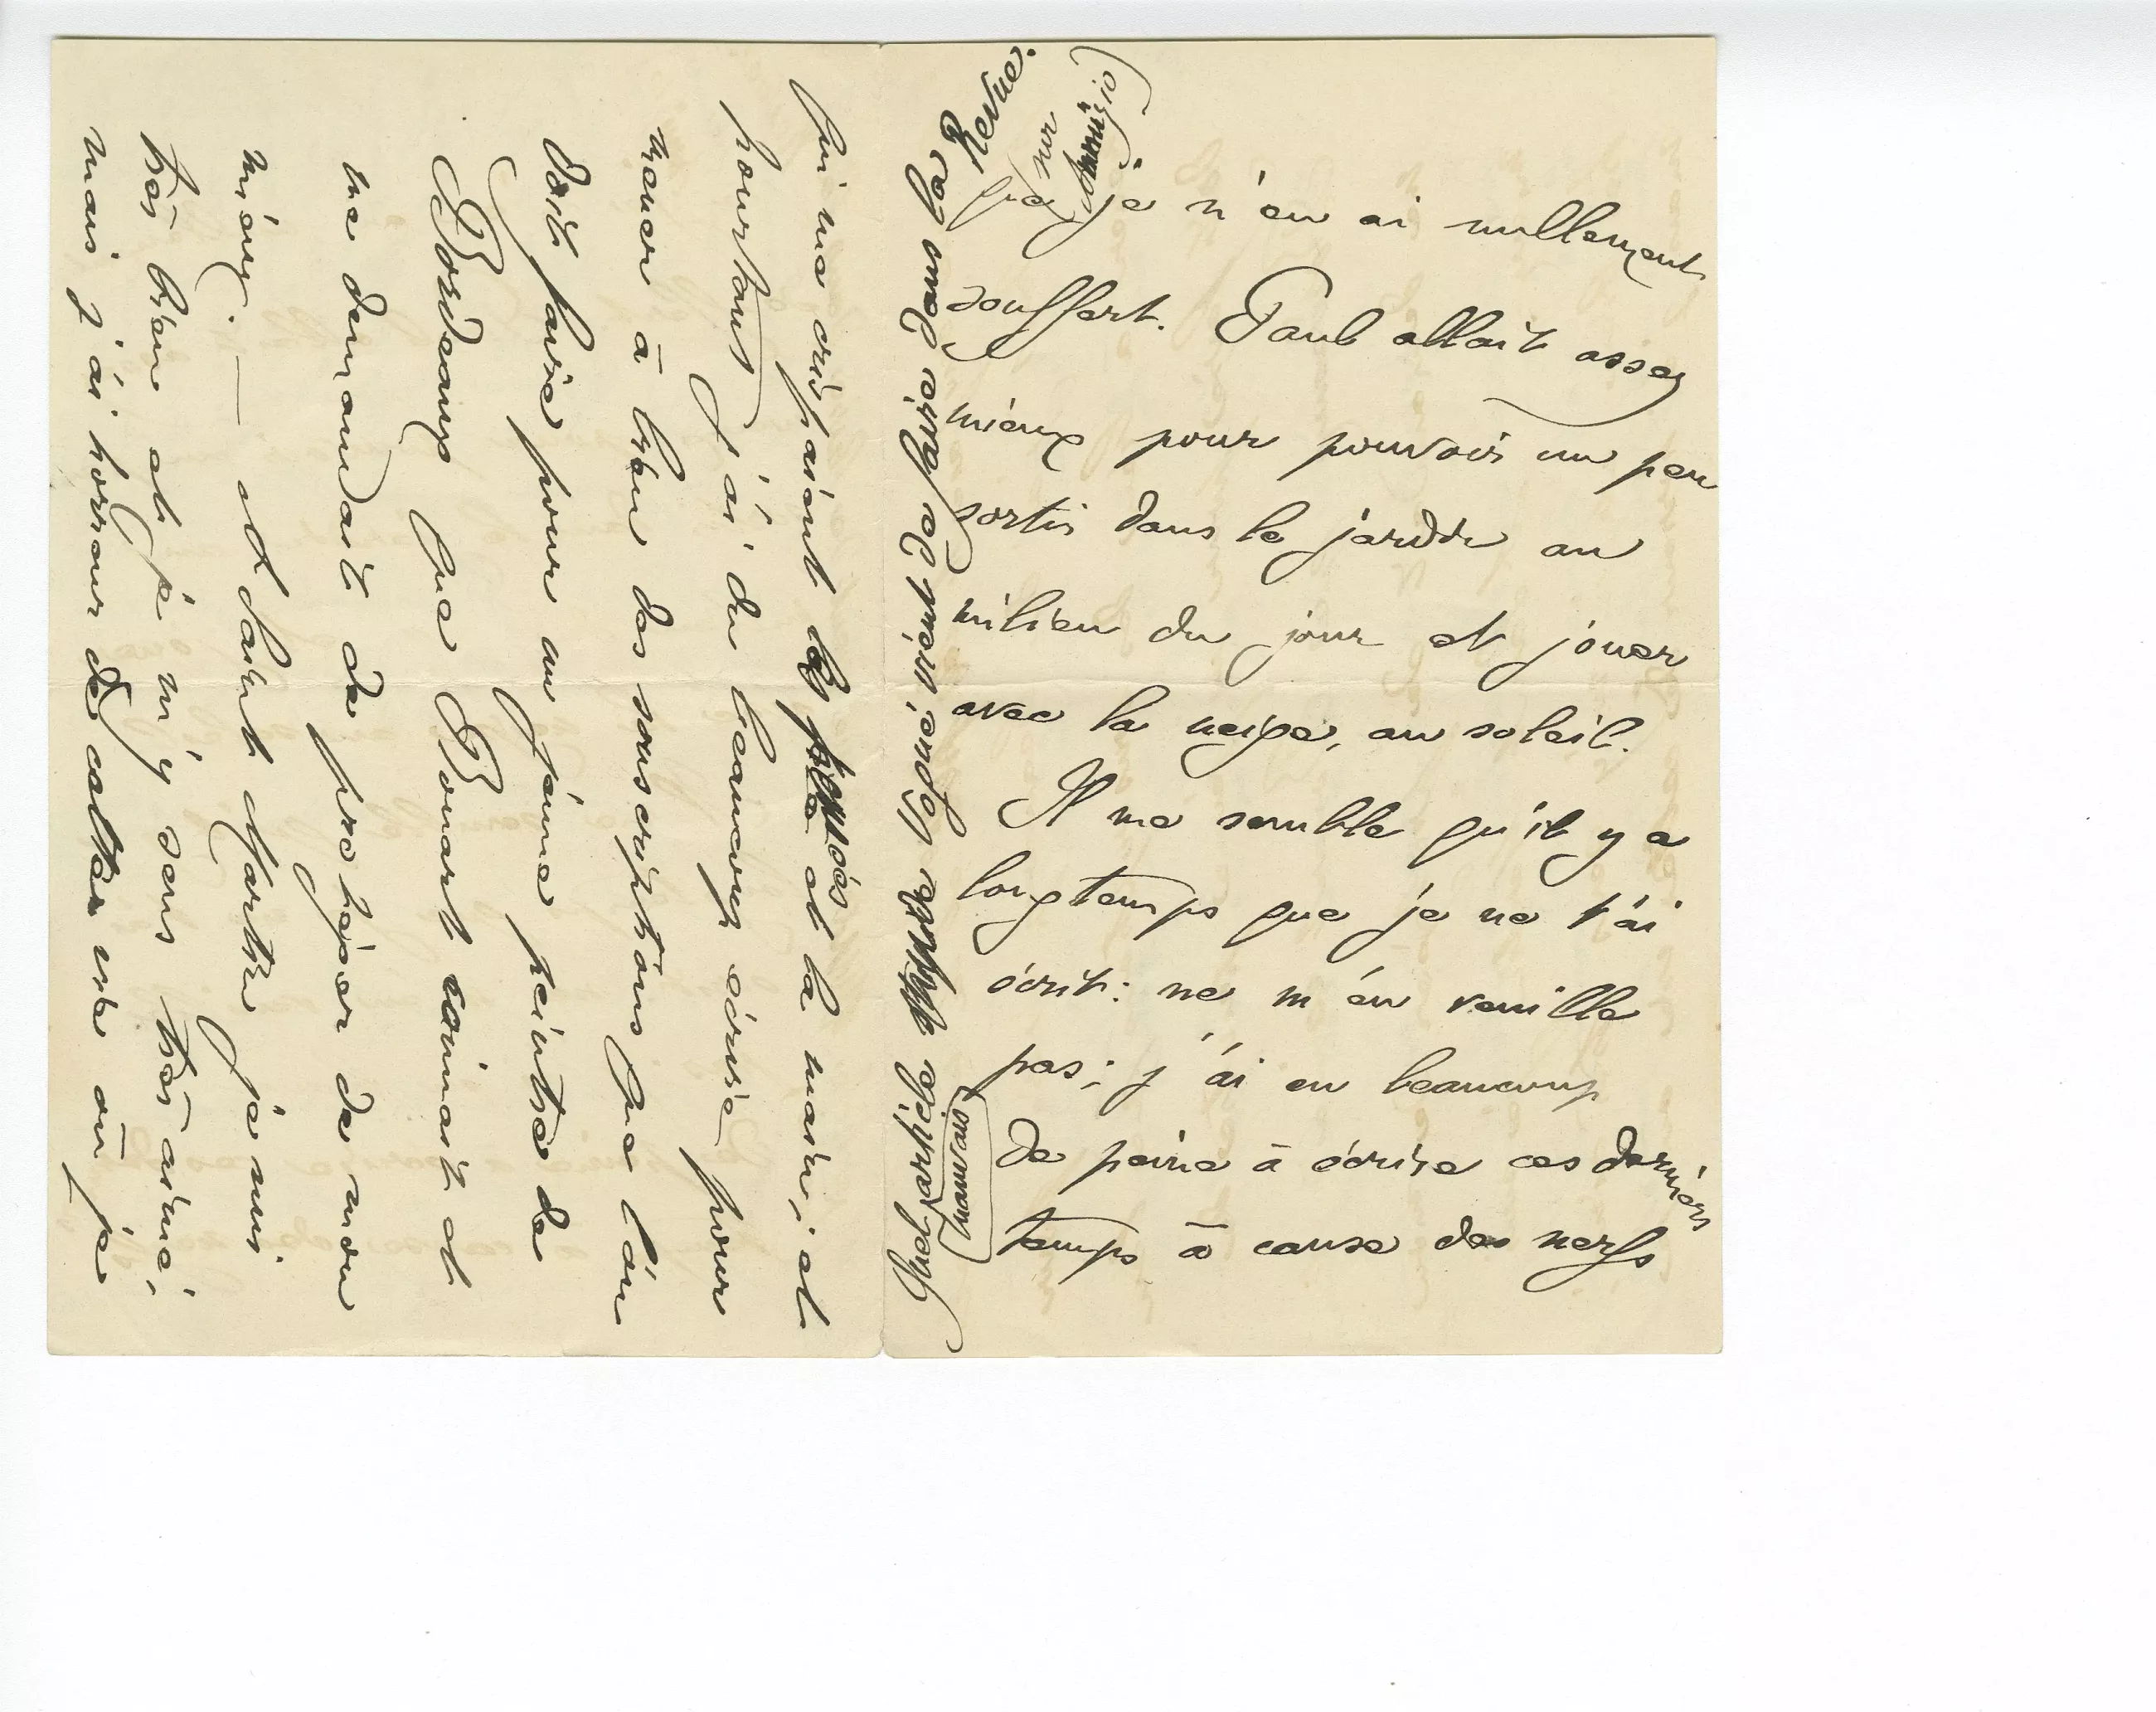 que je n'en ai nullement
souffert. Paul allait assez
mieux pour pouvoir un peu
sortir dans le jardin au
milieu du jour et jouer
avec la neige, au soleil.
Il me semble qu'il y a
longtemps que je ne t'ai
écrit: ne m'en veuille
pas; j'ai eu beaucoup
de peine à écrire ces derniers
temps à cause des nerfs
qui me crispaient les pensées et la main; et
pourtant j'ai du beaucoup écrire pour
mener à bien des souscriptions que l'on
doit faire pour un jeune peintre de
Bordeaux que Bonart aimait et
me demandait de protéger de mon
mieux. — A Saint Martre je suis
très bien et je m'y sens très aimé;
mais j'ai horreur de cette vie où je
dans la
Revue